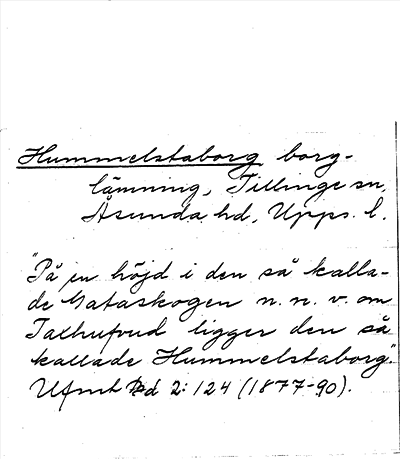 Hummelstaborg borg-
lämning, Tillinge sn,
Åsunda hd, Upps. l.
"På en höjd i den så kalla-
de Gataskogen n. n. v. om
Taxhufvud ligger den så
kallade Hummelstaborg."
Ufmt Bd 2: 124 (1877-90).